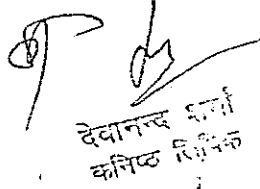 देवानन्द शर्मा
कनिष्ठ लिपिक